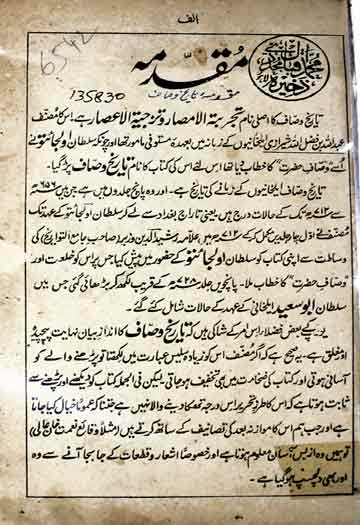 الف
6542
مقدمہ
مقدمہ تاریخ وصاف
135830
تاریخ وصاف کا اصل نام تجزیۃ الامصار و تزجیۃ الاعصار ہے! اس کا مصنف
عبداللہ بن فضل اللہ شیرازی ایلخانیوں کے زمانہ میں بعہدہ مستوفی مامور تھا اور چونکہ سلطان اولجائتو نے
اُسے وصاف حضرت" کا خطاب دیا تھا اس لئے اس کی کتاب کا نام تاریخ وصاف پڑ گیا۔
تاریخ وصاف ایلخانیوں کے زمانے کی تاریخ ہے۔ اور وہ پانچ جلدوں میں ہے جن میں ۶۵۶ھ
سے ۷۱۲ھ تک کے حالات درج ہیں یعنی تاراج بغداد سے لے کر سلطان اولجائتو کے عہد تک
مصنف نے اول چار جلدیں مکمل کر کے ۷۱۲ھ میں علامہ رشید الدین وزیر و صاحب جامع التواریخ کی
وساطت سے اپنی کتاب کو سلطان اولجائتو کے حضور میں پیش کیا جس پر اس کو خلعت اور
"وصاف حضرت" کا خطاب ملا۔ پانچویں جلد ۷۲۸ھ کے قریب لکھ کر بڑھائی گئی جس میں
سلطان ابو سعید ایلخانی کے عہد کے حالات شامل کئے گئے۔
یورپ کے بعض فضلا اس امر کے شاکی ہیں کہ تاریخ وصاف کا انداز بیان نہایت پیچیدہ
اور مغلق ہے۔ یہ صحیح ہے کہ اگر مصنف اس کو زیادہ سلیس عبارت میں لکھتا تو پڑھنے والے کو
آسانی ہوتی اور کتاب کی ضخامت میں بھی تخفیف ہو جاتی لیکن فی الجملہ کتاب کو دیکھنے اور پڑھنے سے
ثابت ہوتا ہے کہ اس کا طرز تحریر اس درجہ تھکا دینے والا نہیں ہے جتنا کہ عموماً خیال کیا جاتا ہے
اور جب ہم اس کا موازنہ بعد کی تصانیف کے ساتھ کرتے ہیں (مثلاً وقائع نعمت خان عالی)
تو ہمیں وہ از بس آسان معلوم ہوتا ہے اور خصوصاً اشعار و قطعات کے جا بجا آنے سے وہ
اور بھی دلچسپ ہو گیا ہے۔